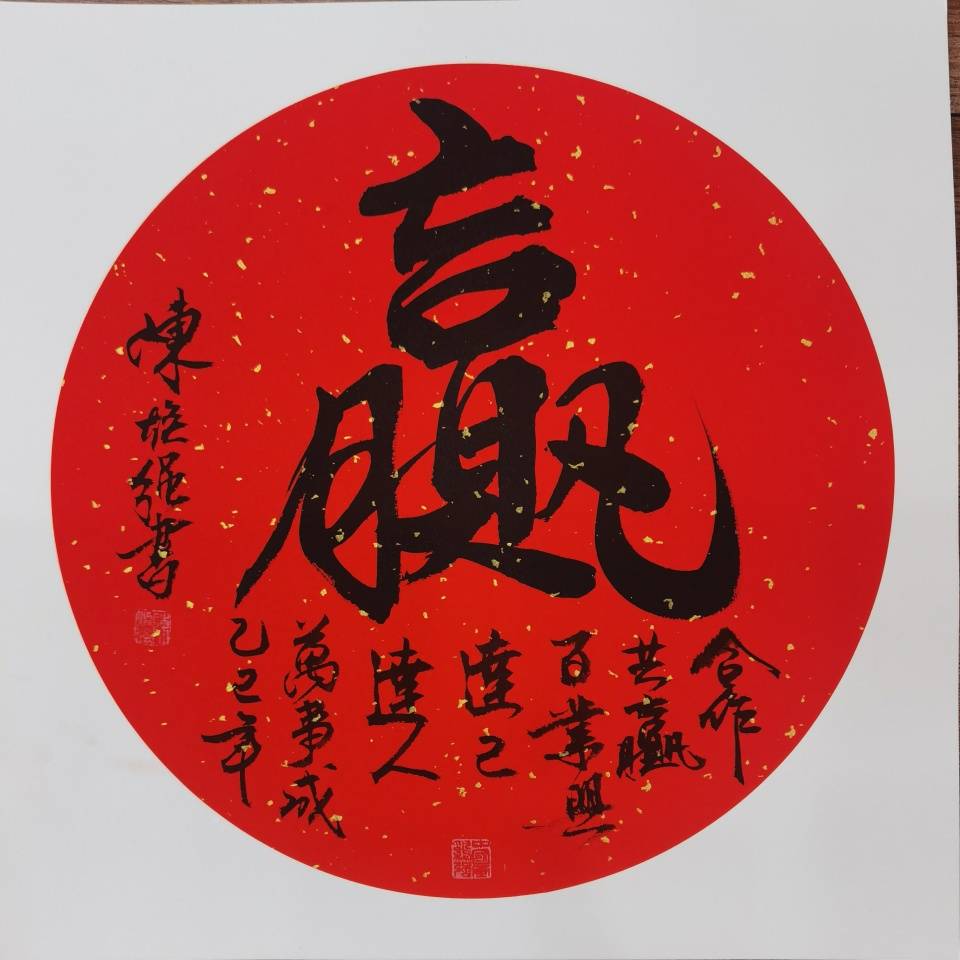 赢
合作
共赢
百業興
達己
達人
萬事成
乙巳年
陳培強書